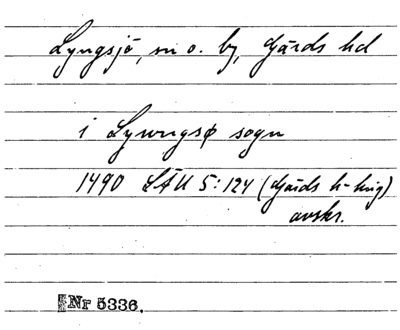 Lyngsjö, sn o. by, Gärds hd
i Lyungsø sogn
1490 LÄU 5:124 (Gärds h-ting)
avskr.
Nr 5336.